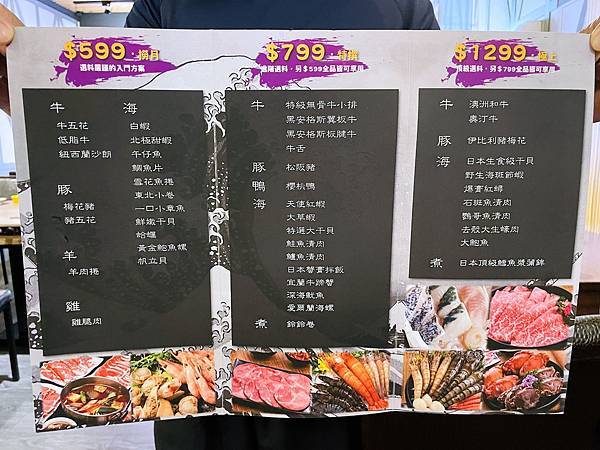 $599·撈月
選料嚴謹的入門方案
牛
牛五花
低脂牛
紐西蘭沙朗
豚
梅花豬
豬五花
羊
羊肉捲
雞
雞腿肉
海
白蝦
北極甜蝦
午仔魚
鯛魚片
雪花魚捲
東北小卷
一口小章魚
鮮嫩干貝
蛤蠣
黃金鮑魚螺
帆立貝
$799
進階選料,另$599全品皆可享用
牛
特級無骨牛小排
黑安格斯翼板牛
黑安格斯板腱牛
牛舌
豚
松阪豬
鴨
櫻桃鴨
海
天使紅蝦
大草蝦
特選大干貝
鮭魚清肉
鱸魚清肉
日本蟹膏拌飯
宜蘭牛蹄蟹
深海魷魚
愛爾蘭海螺
煮
鈴鈴卷
$1299·極上
頂級選料,另$799全品皆可享用
牛
澳洲和牛
奧汀牛
豚
伊比利豬梅花
海
日本生食級干貝
野生海斑節蝦
爆膏紅蟳
石斑魚清肉
鸚哥魚清肉
去殼大生蠔肉
大鮑魚
煮
日本頂級鱈魚漿蒲鉾